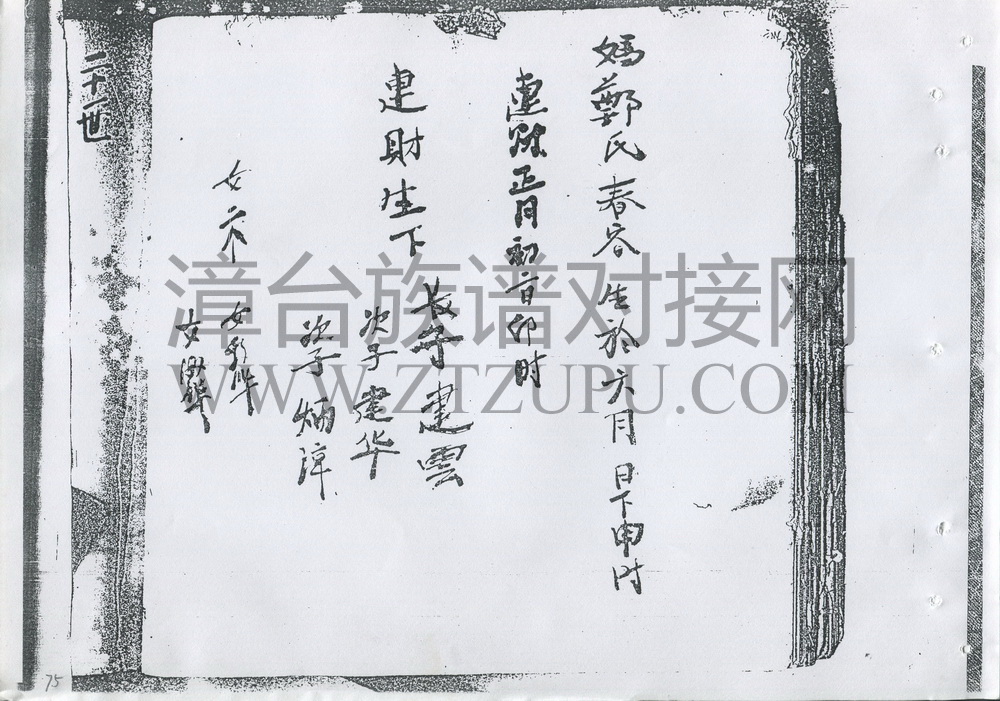 媽鄭氏春容生於六月 日下申时
正月初 卯时
建財生下
長子建雲
次子建华
次子炳漳
女
女彩华
女
二十一世
漳台族谱对接网
WWW.ZTZUPU.COM
75